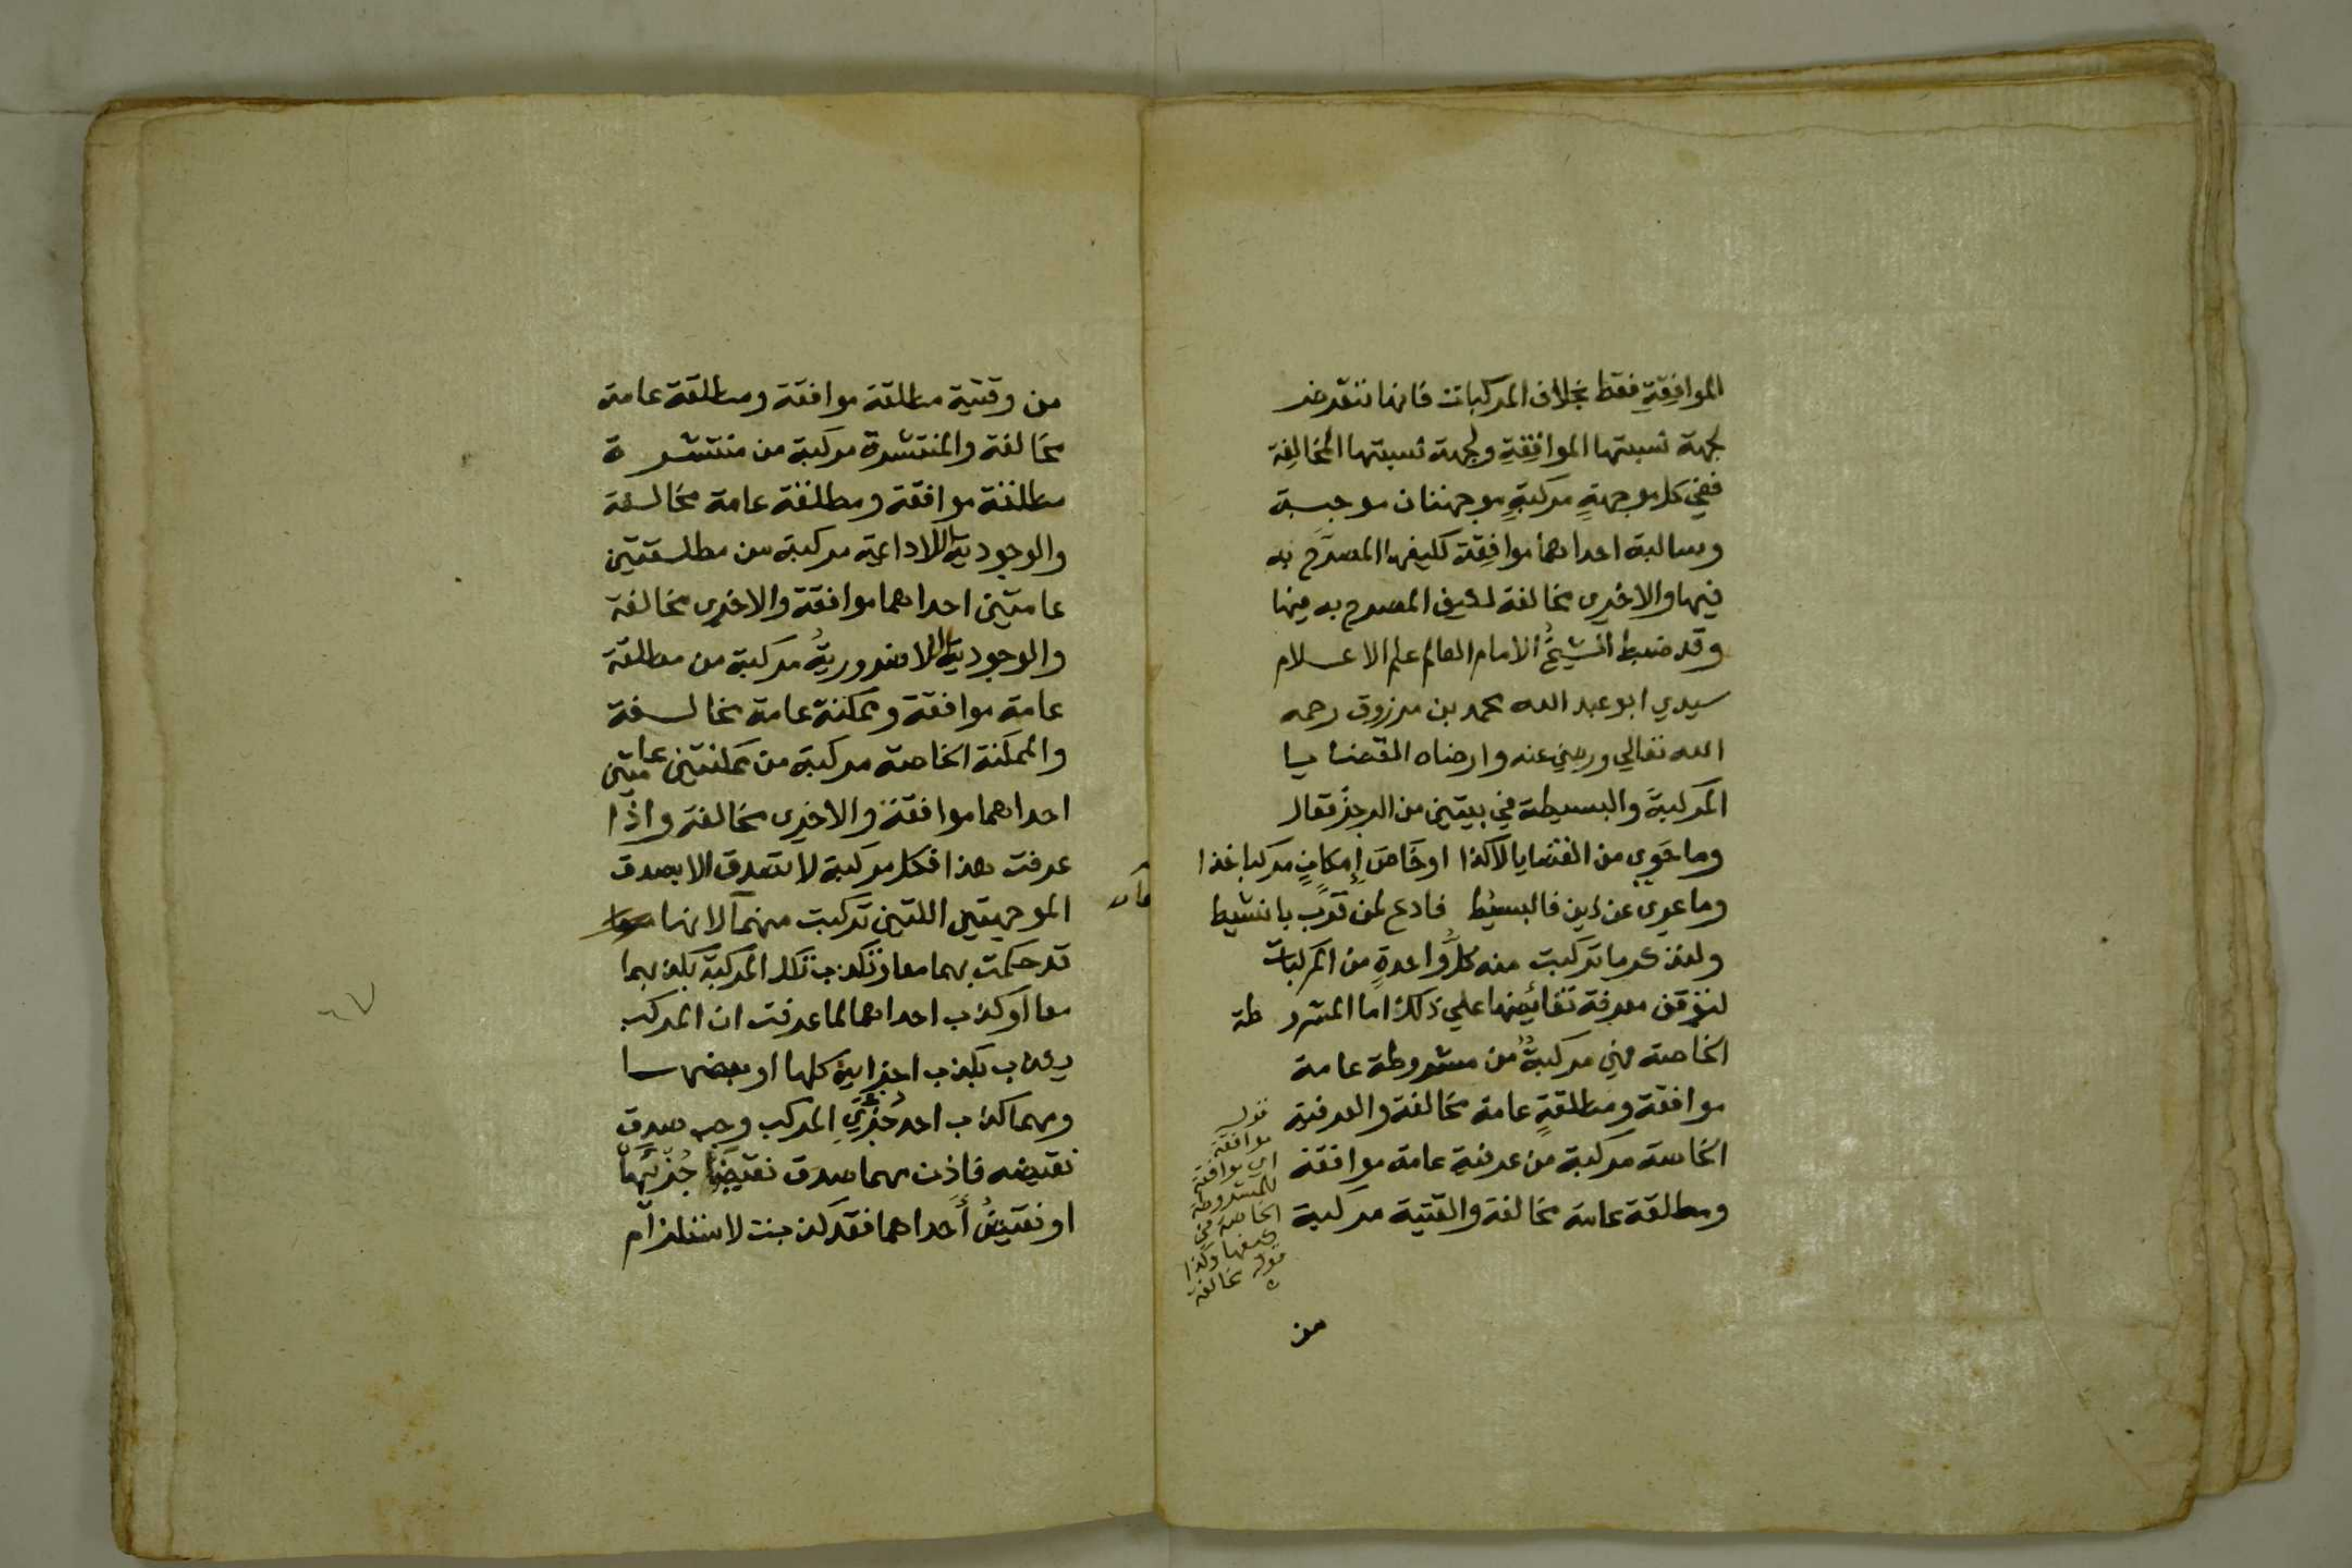 الموافِقةِ فقط بخلاف المركبات فانها تتعرض
لجهة نسبتها الموافِقةِ ولجهة نسبتها المخالِفة
ففي كل موجهةٍ مركبةٍ موجهتان موجبة
وسالبة احداهما موافِقة لكيفها المصرَّح به
فيها والاخرى مخالفة لكيف المصرح به فيها
وقد ضبط الشيخُ الامام العالم علم الاعلام
سيدي ابو عبد الله محمد بن مرزوق رحمه
الله تعالي ورضي عنه وارضاه القضايا
المركبةَ والبسيطة في بيتين من الرجز فقال
وما حَوي من القضايا لا كذا او خَاصَ إمكانٍ مركبا خذا
وما عري عن ذين فالبسيط فادع لمن قرَّب يا نشيط
ولنذكر ما تركبت منه كلُّ واحدةٍ من المركبات
لتوقف معرفة نقائضها علي ذلك اما المشروطة
الخاصة فهي مركبةٌ من مشروطة عامة
موافقة ومطلقةٍ عامة مخالفة والعرفية
الخاصة مركبة من عرفية عامة موافقة
ومطلقة عامة مخالفة والوقتية مركبة
قوله
موافقة
اي موافقة
للمشروطة
الخاصة في
كيفها وكذا
قوله مخالفة
من
من وقتية مطلقة موافقة ومطلقة عامة
مخالفة والمنتشرة مركبة من منتشرة
مطلقة موافقة ومطلقة عامة مخالفة
والوجودية اللاداعية مركبة من مطلقتين
عامتين احداهما موافقة والاخرى مخالفة
والوجودية اللاضروريةُ مركبة من مطلقة
عامة موافقة وممكنة عامة مخالفة
والممكنة الخاصة مركبة من ممكنتين عامتين
احداهما موافقة والاخرى مخالفة واذا
عرفت هذا فكل مركبة لا تصدق الا بصدق
الموجهتين اللتين تركبت منهما لانها
قد حكمت بهما معا وتكذب تلك المركبة بكذبهما
معا او كذب احداهما لما عرفت ان المركب
يكذب بكذب اجزايه كلها او بعضها
ومهما كذب احد جُزْءَيِ المركب وجب صدق
نقيضه فاذن مهما صدق نقيضا جُزْئَيها
او نقيضُ أحداهما فقد كذبت لاستلزام
٦٧